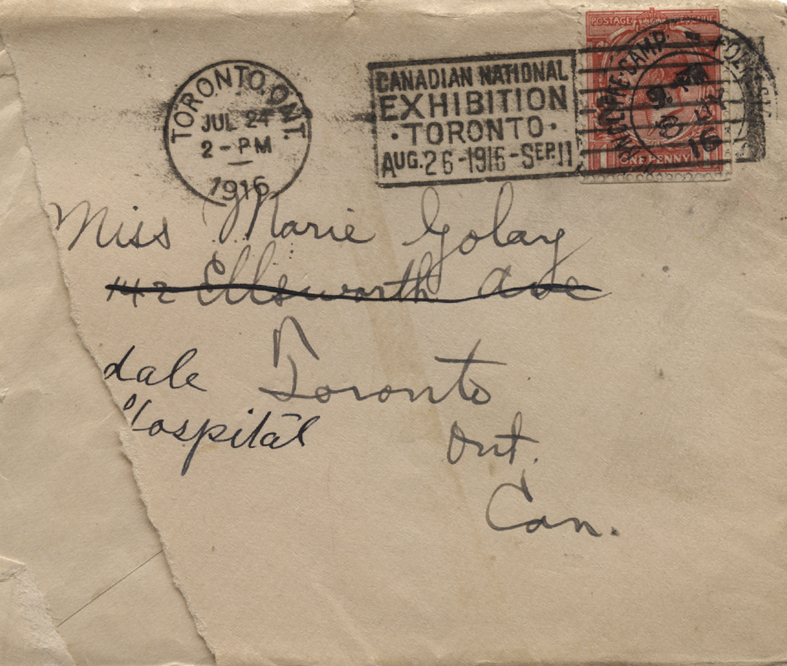 POSTAGE
TORONTO, ONT.
JUL 24
2 - PM
1916
CANADIAN NATIONAL
EXHIBITION
· TORONTO ·
AUG. 26 - 1916 - SEP. 11
CAMP
16
1 ONE PENNY 1
Miss Marie Golay
142 Ellsworth Ave
dale Toronto
Hospital
Ont.
Can.